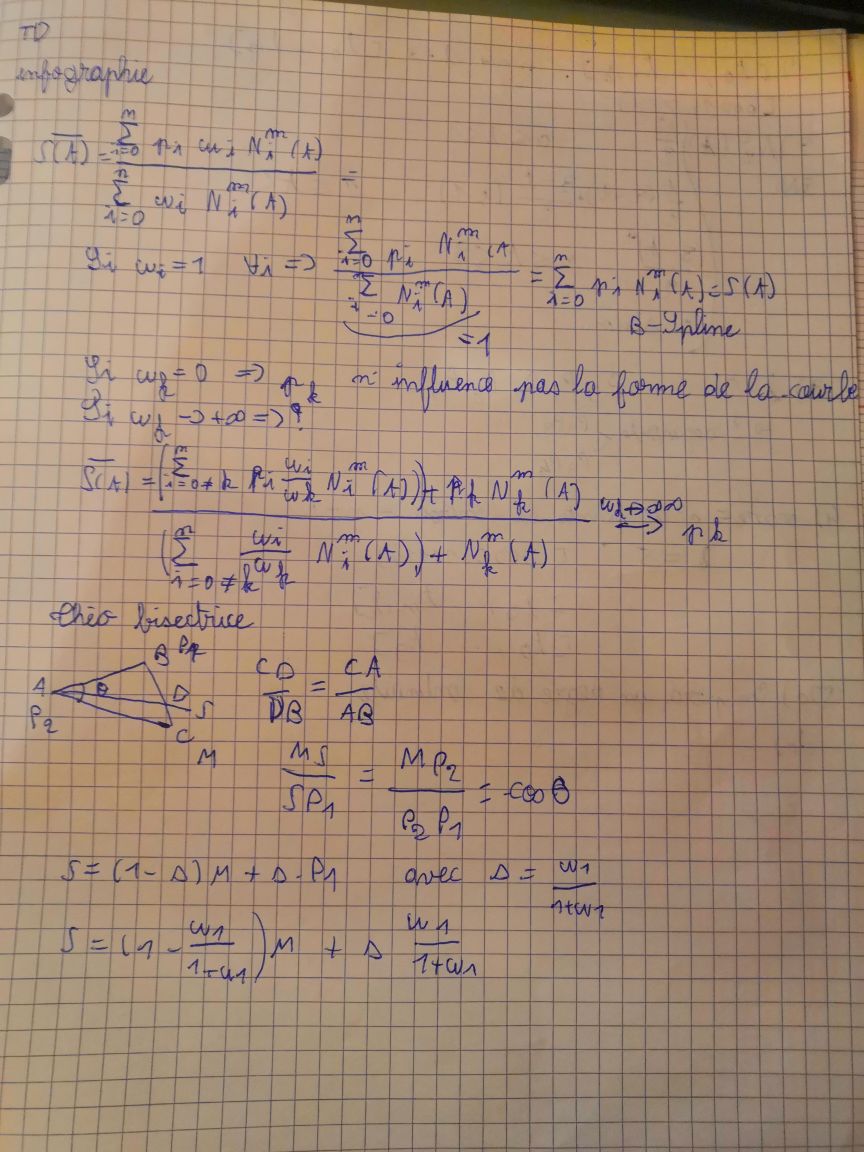 TD
infographie
S̅(̅A̅)̅ = (∑_{i=0}^{n} pi wi N_i^m(A)) / (∑_{i=0}^{n} wi N_i^m(A)) =
Si wi = 1 ∀i => (∑_{i=0}^{n} pi N_i^m(A) / (∑_{i=0} N_i^m(A)) = ∑_{i=0}^{n} pi N_i^m(A) = S(A)
= 1
B-Spline
Si wk = 0 => pk n'influence pas la forme de la courbe
Si wk -> +∞ => ?
S̅(̅A̅)̅ = ((∑_{i=0≠k}^{n} pi wi/wk N_i^m(A)) + pk N_k^m(A)) / ((∑_{i=0≠k}^{n} wi/wk N_i^m(A)) + N_k^m(A)) wk->∞ => pk
théo bisectrice
B P1
A θ D S
P2 C
M
CD/DB = CA/AB
MS/SP1 = MP2/P2P1 = cos θ
S = (1 - Δ) M + Δ · P1 avec Δ = w1/(1+w1)
S = (1 - w1/(1+w1)) M + Δ w1/(1+w1)